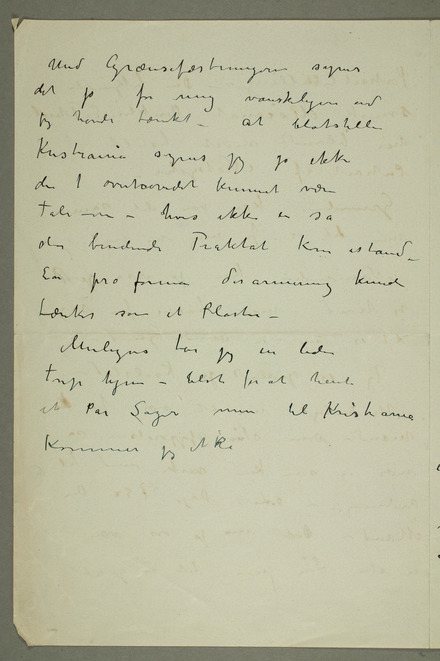 Med Grænsefæstningerne synes
det jo for mig vanskeligere end
jeg havde tænkt – at blotstille
Kristiania synes jeg jo ikke
der overhovedet kunnet være
Tale om – hvis ikke en sa
den bindende Traktat kom istand –
En pro forma desarmering kunde
tænkes som et Plaster –
Muligens tar jeg en liden
Trip hjem – blot for at hente
et Par Sager men til Kristiania
kommer jeg ikke